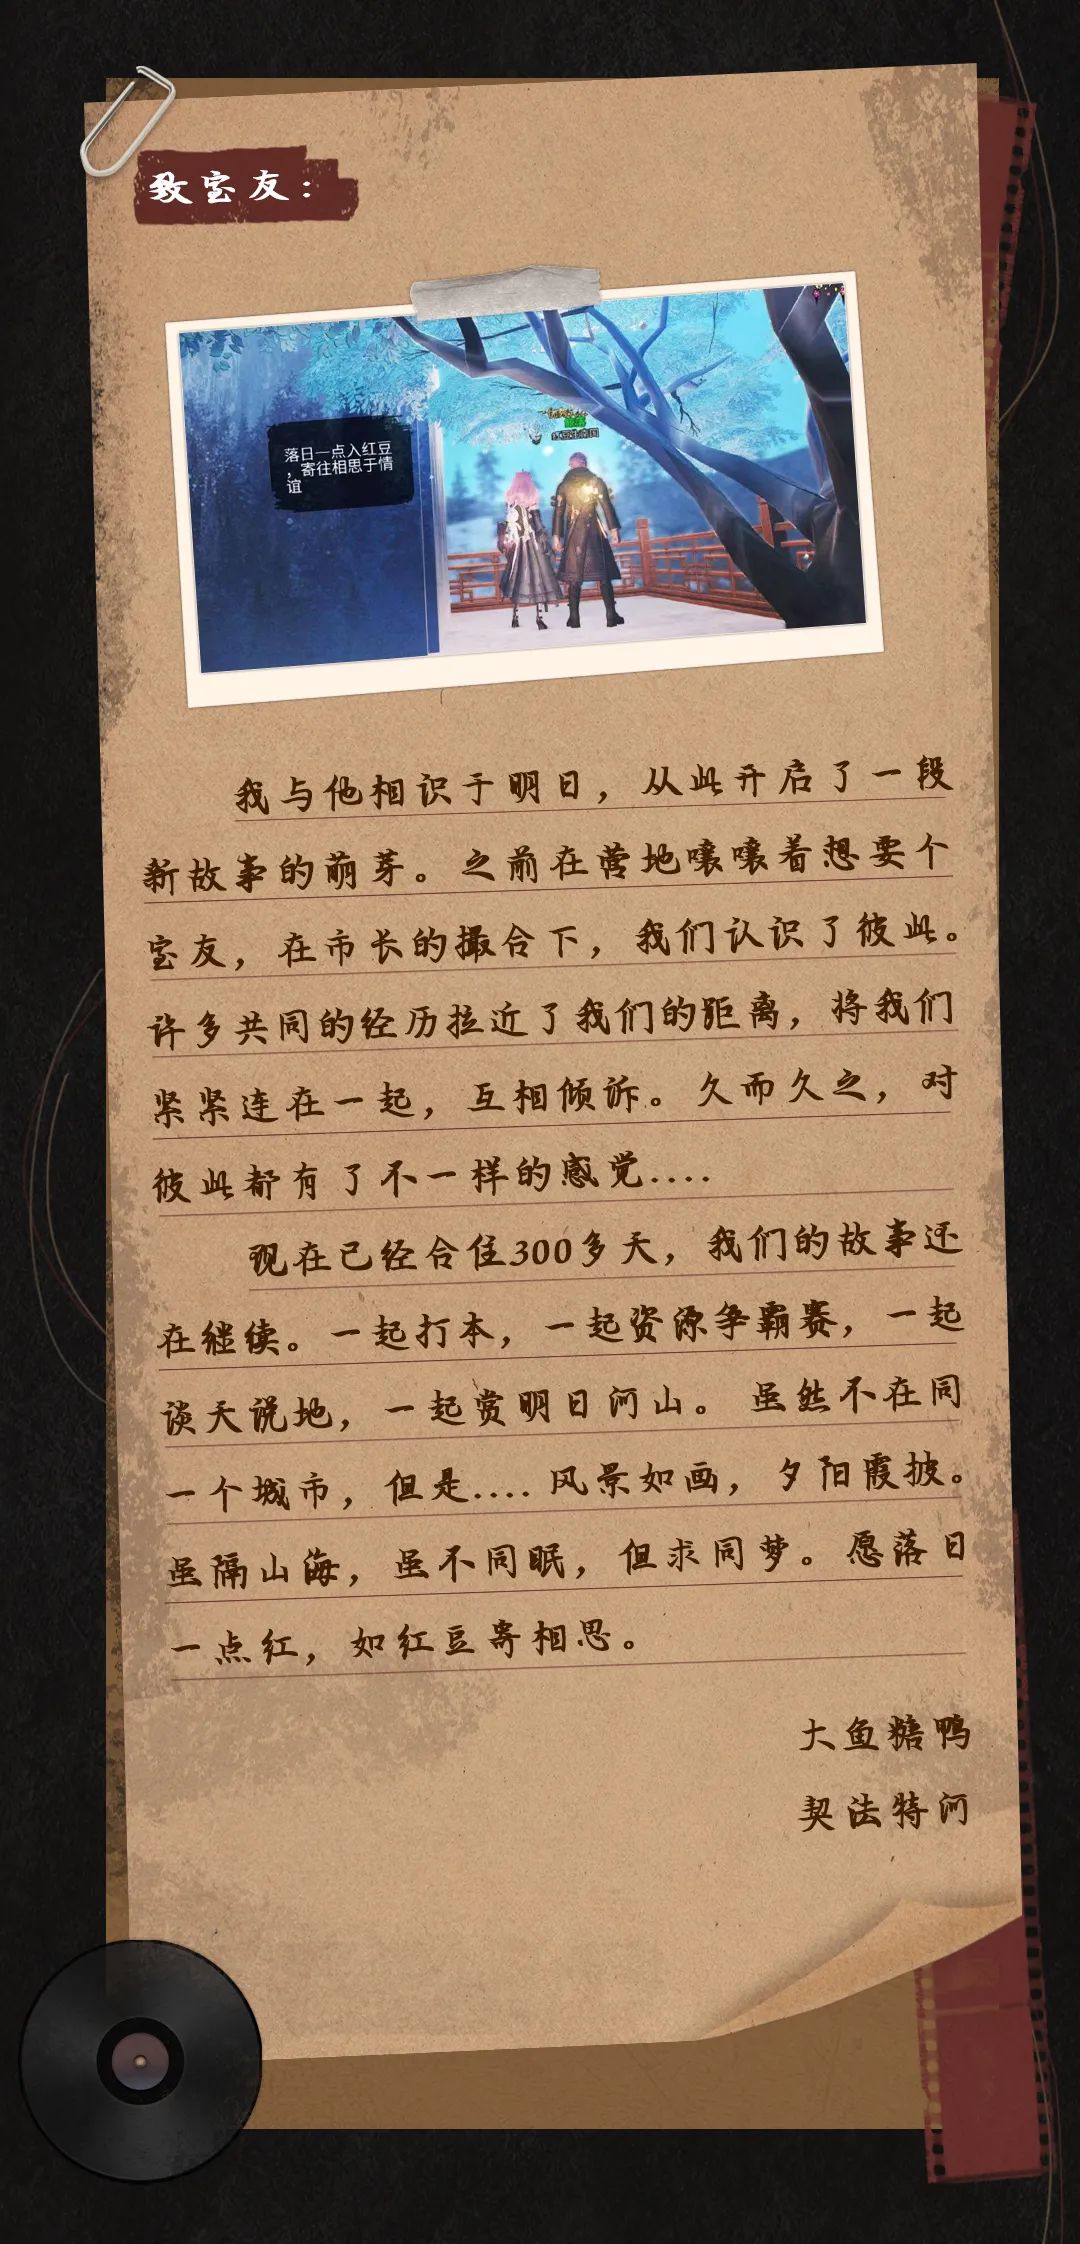 致宝友：
落日一点入红豆
，寄往相思于情
谊
我与他相识于明日，从此开启了一段
新故事的萌芽。之前在营地嚷嚷着想要个
宝友，在市长的撮合下，我们认识了彼此。
许多共同的经历拉近了我们的距离，将我们
紧紧连在一起，互相倾诉。久而久之，对
彼此都有了不一样的感觉....
现在已经合住300多天，我们的故事还
在继续。一起打本，一起资源争霸赛，一起
谈天说地，一起赏明日河山。虽然不在同
一个城市，但是....风景如画，夕阳霞披。
虽隔山海，虽不同眠，但求同梦。愿落日
一点红，如红豆寄相思。
大鱼糖鸭
契法特河